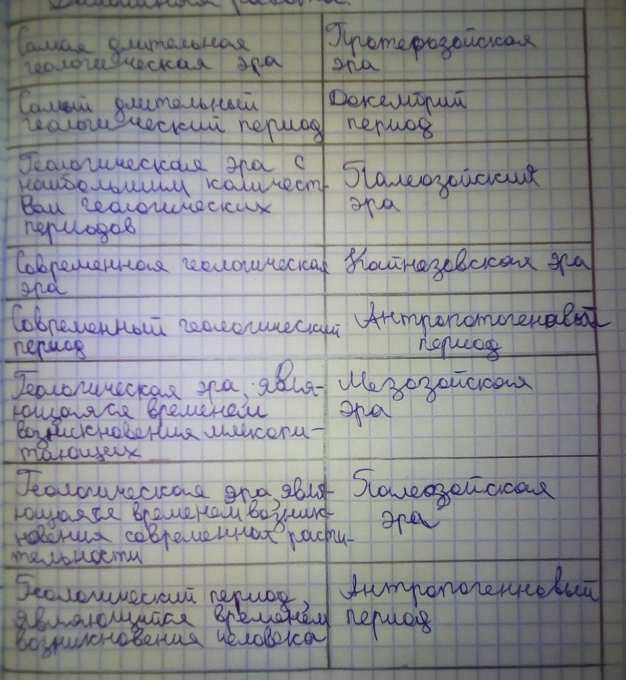 Домашняя работа.
Самая длительная
геологическая эра
Протерозойская
эра
Самый длительный
геологический период
Докембрий
период
Геологическая эра с
наибольшим количест-
вом геологических
периодов
Палеозойския
эра
Современная геологическая
эра
Кайнозовская эра
Современный геологический
период
Антропотогеновый
период
Геологическая эра, явля-
ющаяся временем
возникновения млекопи-
тающих
Мезозойская
эра
Геологическая эра, явля-
ющаяся временем возник-
новения современной расти-
тельности
Палеозойская
эра
Геологический период,
являющийся временем
возникновения человека
Антропогенновый
период